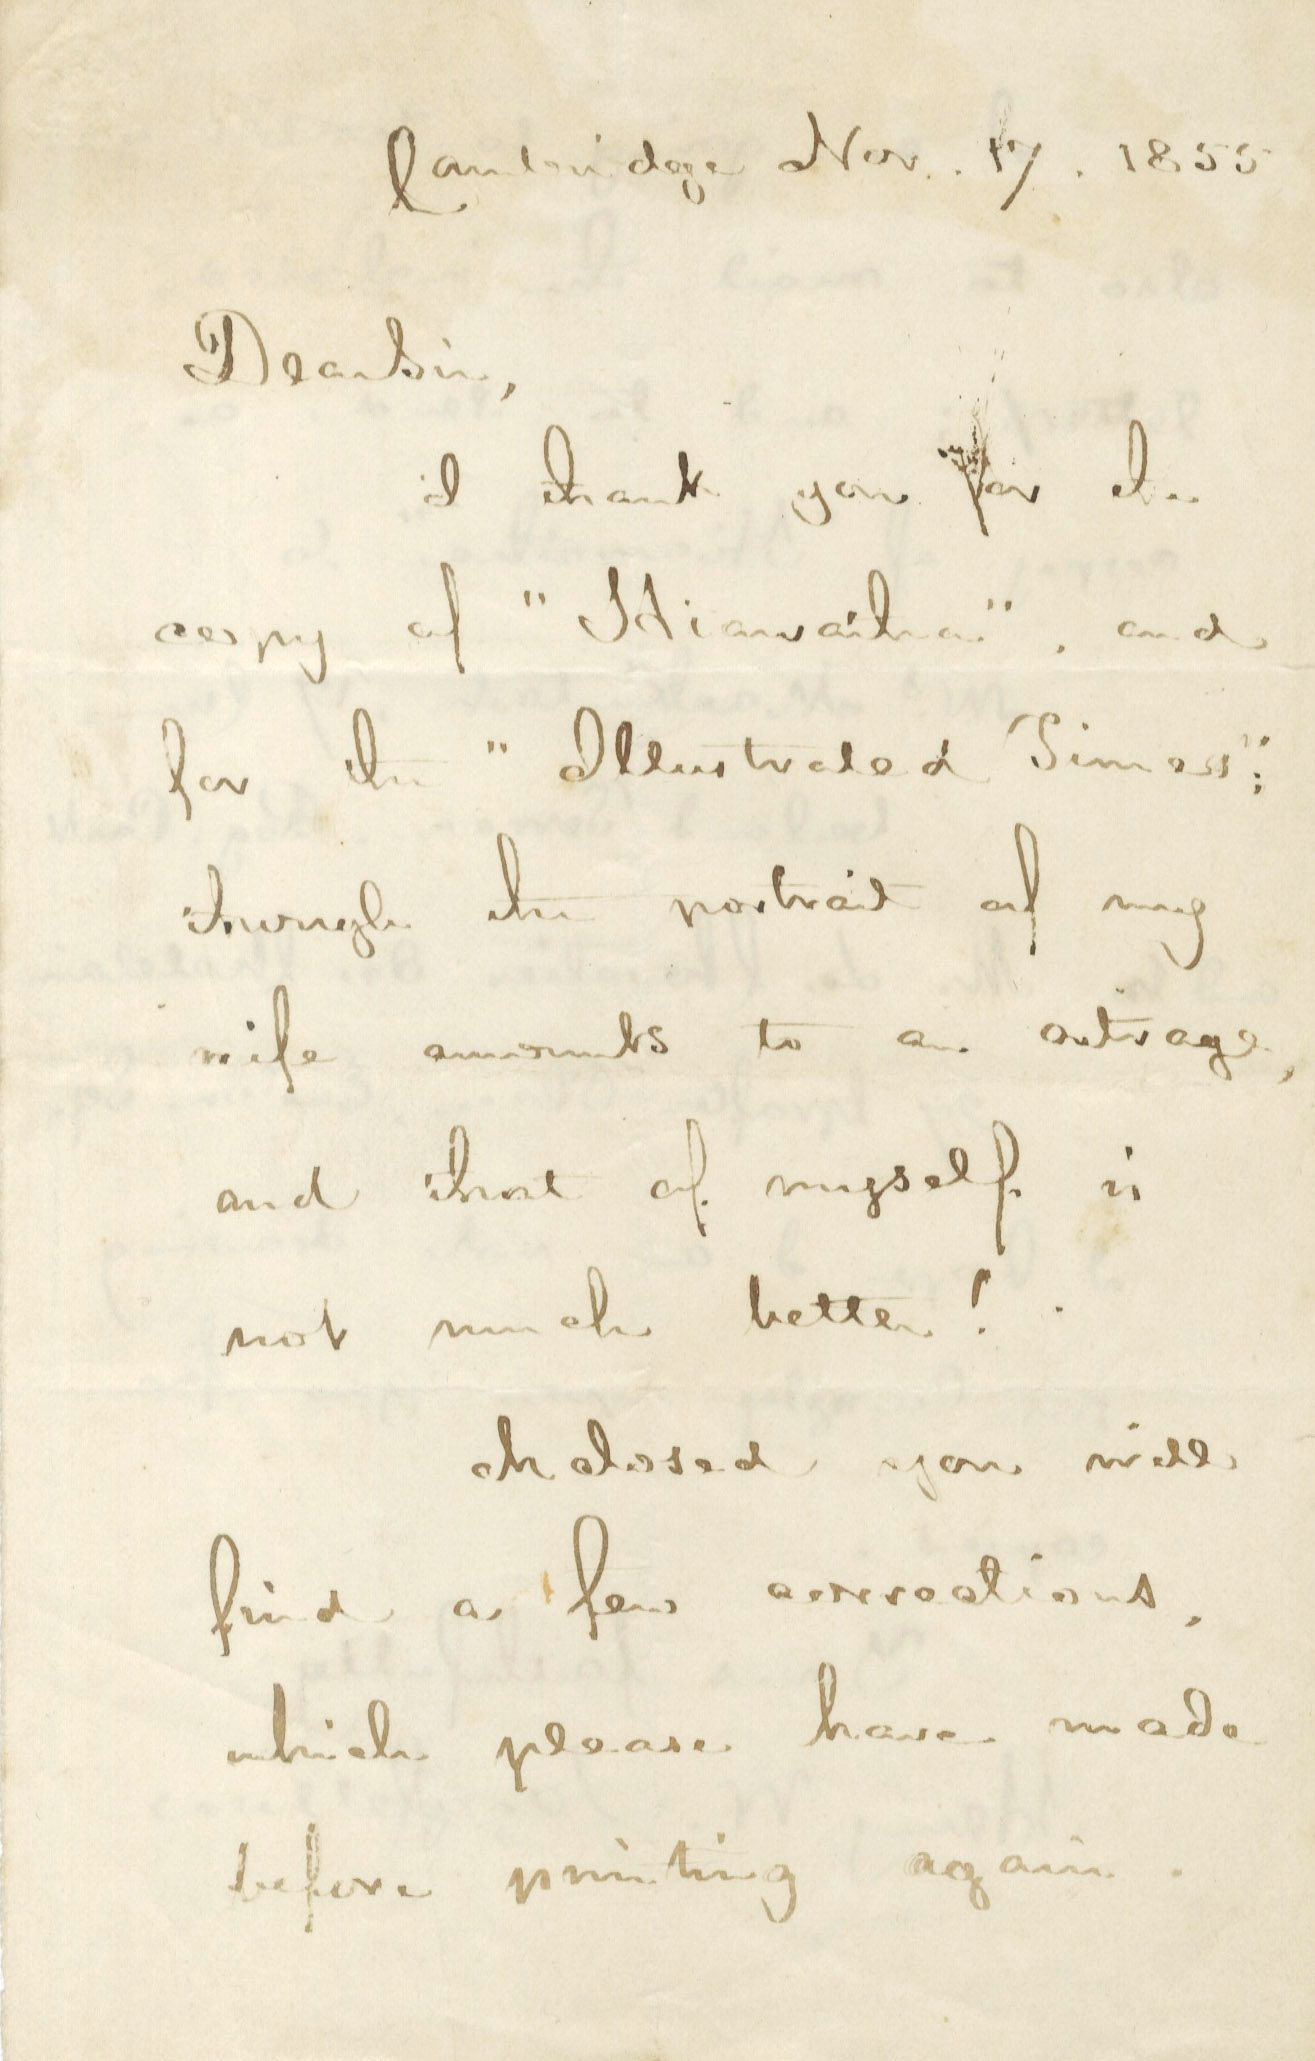 Cambridge Nov. 17. 1855
Dear Sir,
I thank you for the
copy of "Hiawatha", and
for the "Illustrated Times";
though the portrait of my
wife amounts to an outrage,
and that of myself is
not much better!
Enclosed you will
find a few corrections,
which please have made
before printing again.